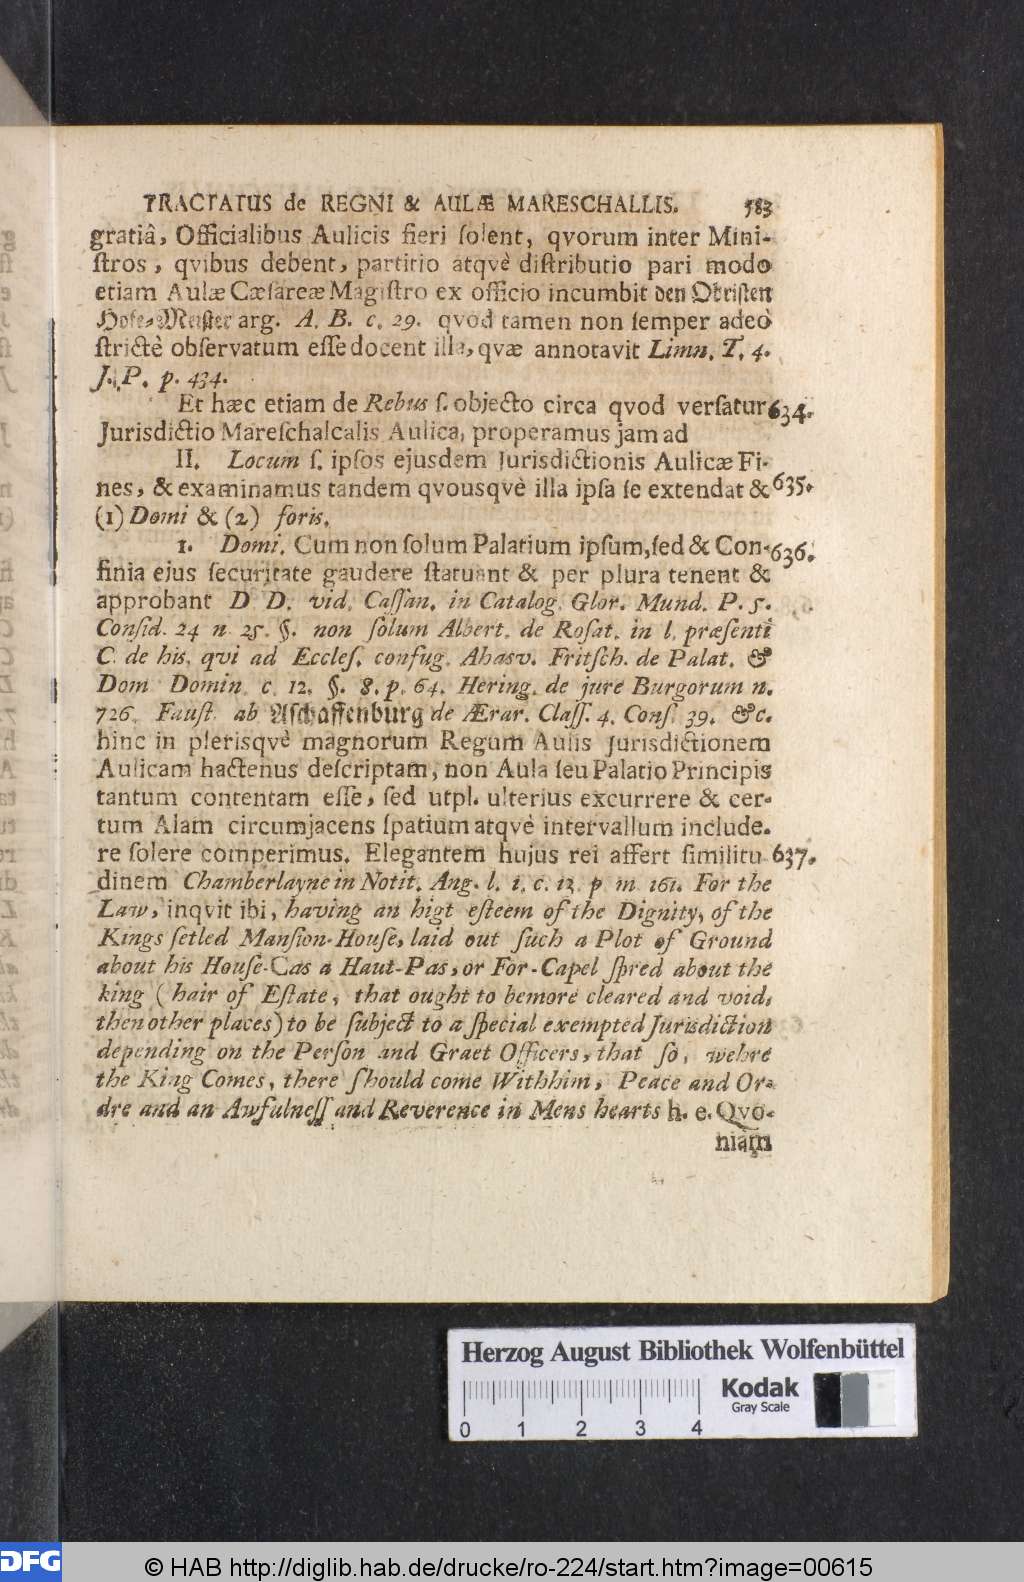 TRACTATUS de REGNI & AULÆ MARESCHALLIS. 583
gratiâ, Officialibus Aulicis fieri ſolent, qvorum inter Mini-
ſtros, qvibus debent, partitio atqvè diſtributio pari modo
etiam Aulæ Cæſareæ Magiſtro ex officio incumbit den Obriſten
Hofe-Meiſter arg. A. B. c. 29. qvod tamen non ſemper adeò
ſtrictè obſervatum eſſe docent illa, qvæ annotavit Limn. T. 4.
J. P. p. 434.
Et hæc etiam de Rebus ſ. objecto circa qvod verſatur 634.
Jurisdictio Mareſchalcalis Aulica, properamus jam ad
II. Locum ſ. ipſos ejusdem Jurisdictionis Aulicæ Fi-
nes, & examinamus tandem qvousqvè illa ipſa ſe extendat & 635.
(1) Domi & (2) foris.
1. Domi. Cum non ſolum Palatium ipſum, ſed & Con- 636.
finia ejus ſecuritate gaudere ſtatuant & per plura tenent &
approbant D D. vid. Caſſan. in Catalog. Glor. Mund. P. 5.
Conſid. 24 n. 25. §. non ſolum Albert. de Roſat. in l. præſenti
C. de his, qvi ad Eccleſ. confug. Ahasv. Fritſch. de Palat. &
Dom Domin. c. 12. §. 8. p. 64. Hering. de jure Burgorum n.
726. Fauſt. ab Aſchaffenburg de Ærar. Claſſ. 4. Conſ. 39. &c.
hinc in plerisqvè magnorum Regum Aulis Jurisdictionem
Aulicam hactenus deſcriptam, non Aula ſeu Palatio Principis
tantum contentam eſſe, ſed utpl. ulterius excurrere & cer-
tum Alam circumjacens ſpatium atqvè intervallum include-
re ſolere comperimus. Elegantem hujus rei affert ſimilitu- 637.
dinem Chamberlayne in Notit. Ang. l. 1. c. 13. p m 161. For the
Law, inqvit ibi, having an higt eſteem of the Dignity, of the
Kings ſetled Manſion-Houſe, laid out ſuch a Plot of Ground
about his Houſe-Cas a Haut-Pas, or For-Capel ſpred about the
king (hair of Eſtate, that ought to bemore cleared and void,
then other places) to be ſubject to a ſpecial exempted Jurisdiction
depending on the Perſon and Graet Officers, that ſo, wehre
the King Comes, there ſhould come Withhim, Peace and Or-
dre and an Awfulneſſ and Reverence in Mens hearts h. e. Qvo-
niam
Herzog August Bibliothek Wolfenbüttel
Kodak
Gray Scale
0 1 2 3 4
DFG
© HAB http://diglib.hab.de/drucke/ro-224/start.htm?image=00615